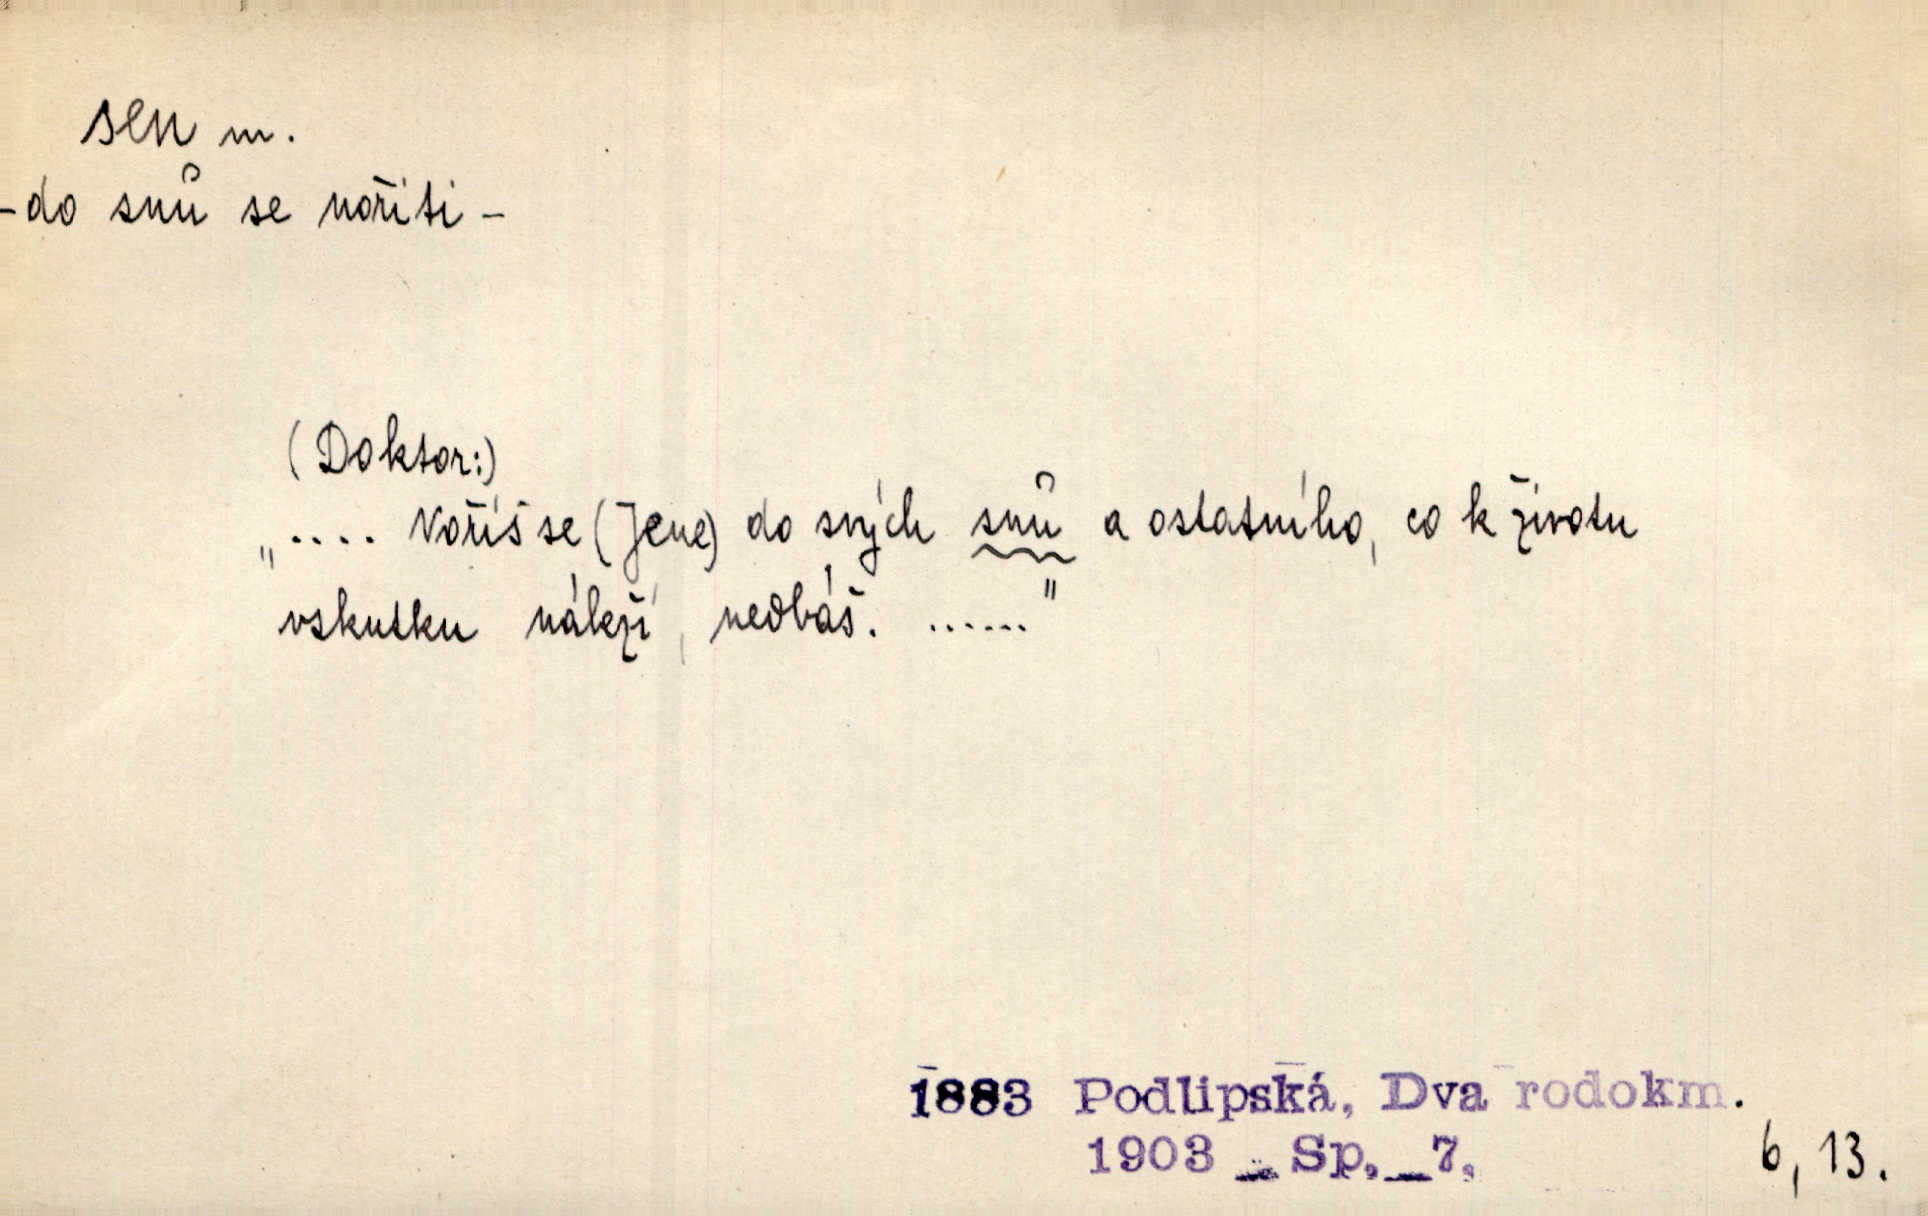 sen m.
-do snů se nořiti-
(Doktor:)
„.... Noříš se (Jene) do svých snů a ostatního, co k životu
vskutku náleží, nedbáš. ......"
1883 Podlipská, Dva rodokm.
1903 _ Sp. _ 7.
6, 13.